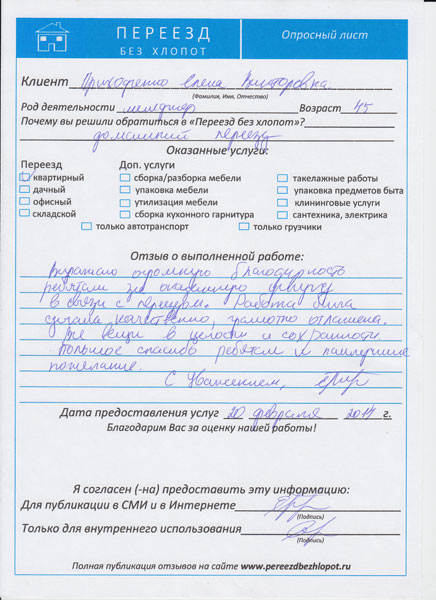 ПЕРЕЕЗД
БЕЗ ХЛОПОТ
Опросный лист
Клиент Приходченко Елена Викторовна
(Фамилия, Имя, Отчество)
Род деятельности менеджер Возраст 45
Почему вы решили обратиться в «Переезд без хлопот»?
домашний переезд
Оказанные услуги:
Переезд Доп. услуги
квартирный сборка/разборка мебели такелажные работы
дачный упаковка мебели упаковка предметов быта
офисный утилизация мебели клининговые услуги
складской сборка кухонного гарнитура сантехника, электрика
только автотранспорт только грузчики
Отзыв о выполненной работе:
Выражаю огромную благодарность
ребятам за оказанную
в связи с переездом. Работа была
сделана качественно, грамотно отлажена.
Все вещи в целости и сохранности.
Большое спасибо ребятам и наилучшие
пожелания.
С Уважением,
Дата предоставления услуг 20 февраля 2014 г.
Благодарим Вас за оценку нашей работы!
Я согласен (-на) предоставить эту информацию:
Для публикации в СМИ и в Интернете
(Подпись)
Только для внутреннего использования
(Подпись)
Полная публикация отзывов на сайте www.pereezdbezhlopot.ru